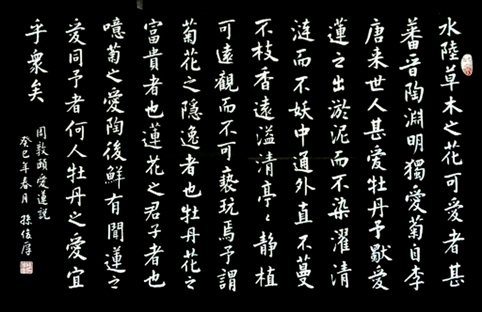 水陸草木之花可愛者甚
蕃晉陶淵明獨愛菊自李
唐来世人甚爱牡丹予獨爱
蓮之出淤泥而不染濯清
漣而不妖中通外直不蔓
不枝香遠溢清亭〻静植
可遠觀而不可褻玩焉予謂
菊花之隱逸者也牡丹花之
富貴者也蓮花之君子者也
噫菊之爱陶後鮮有聞蓮之
爱同予者何人牡丹之爱宜
乎衆矣
周敦頤爱蓮説
癸巳年春月 孫